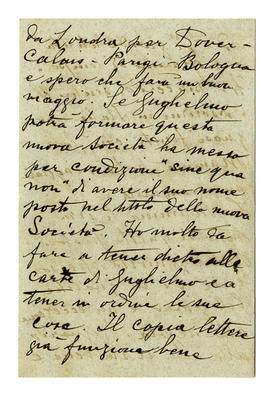 da Londra per Dover-
Calais - Parigi - Bologna
e spero che farà un buon
viaggio. Se Guglielmo
potrà formare questa
nuova Società ha messo
per condizione "sine qua
non" di avere il suo nome
posto nel titolo della nuova
Società. Ho molto da
fare a tener dietro alle
carte di Guglielmo e a
tener in ordine le sue
cose. Il copia lettere
già funziona bene